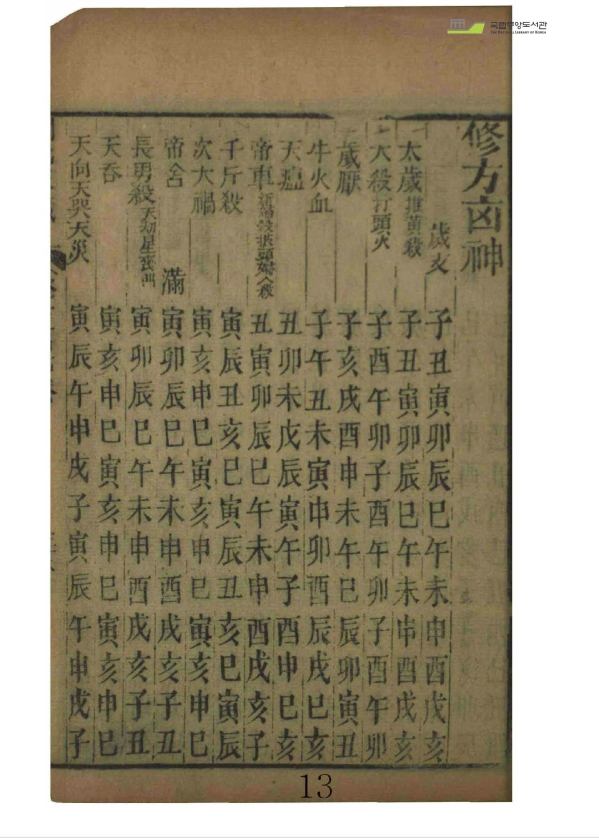 국립중앙도서관
THE NATIONAL LIBRARY OF KOREA
修方凶神
歲支 子丑寅卯辰巳午未申酉戌亥
太歲堆黃殺 子丑寅卯辰巳午未申酉戌亥
大殺打頭火 子酉午卯子酉午卯子酉午卯
歲厭 子亥戌酉申未午巳辰卯寅丑
牛火血 子午丑未寅申卯酉辰戌巳亥
天瘟 丑卯未戌辰寅午子酉申巳亥
帝車 丑寅卯辰巳午未申酉戌亥子
千斤殺 寅辰丑亥巳寅辰丑亥巳寅辰
次大禍 寅亥申巳寅亥申巳寅亥申巳
帝舍 滿 寅卯辰巳午未申酉戌亥子丑
長男殺天劫星 寅卯辰巳午未申酉戌亥子丑
天吞 寅亥申巳寅亥申巳寅亥申巳
天向天哭天災 寅辰午申戌子寅辰午申戌子
13